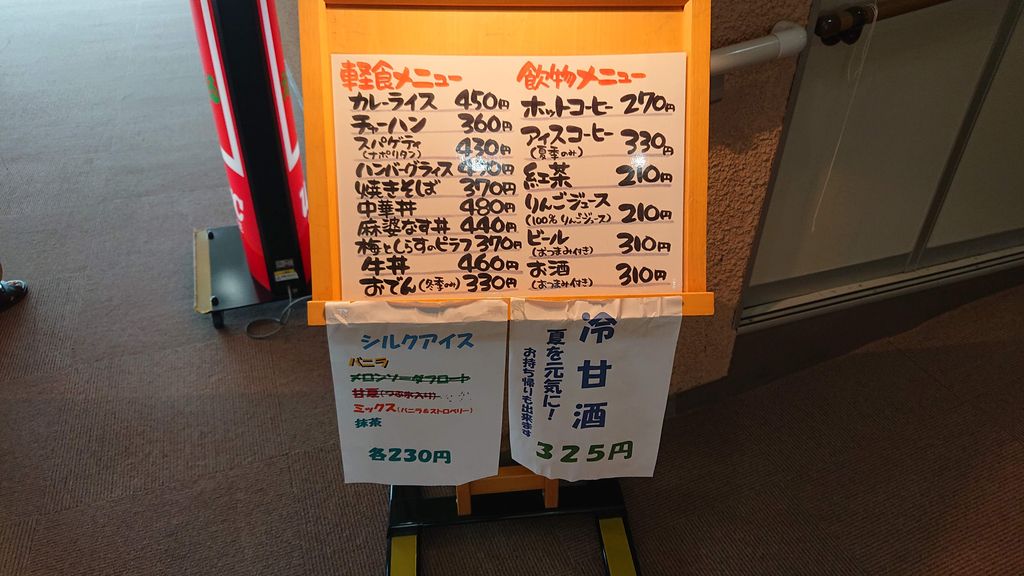 軽食メニュー
カレーライス 450円
チャーハン 360円
スパゲティ
(ナポリタン) 430円
ハンバーグライス
焼きそば 370円
中華丼 480円
麻婆なす丼 440円
梅としらすのピラフ 370円
牛丼 460円
おでん(冬季のみ) 330円
飲物メニュー
ホットコーヒー 270円
アイスコーヒー
(夏季のみ) 330円
紅茶 210円
りんごジュース
(100%りんごジュース) 210円
ビール
(おつまみ付き) 310円
お酒
(おつまみ付き) 310円
シルクアイス
バニラ
メロンソーダフロート
甘夏(つぶ氷入り)
ミックス(バニラ&ストロベリー)
抹茶
各230円
冷甘酒
夏を元気に!
お持ち帰りも出来ます
325円